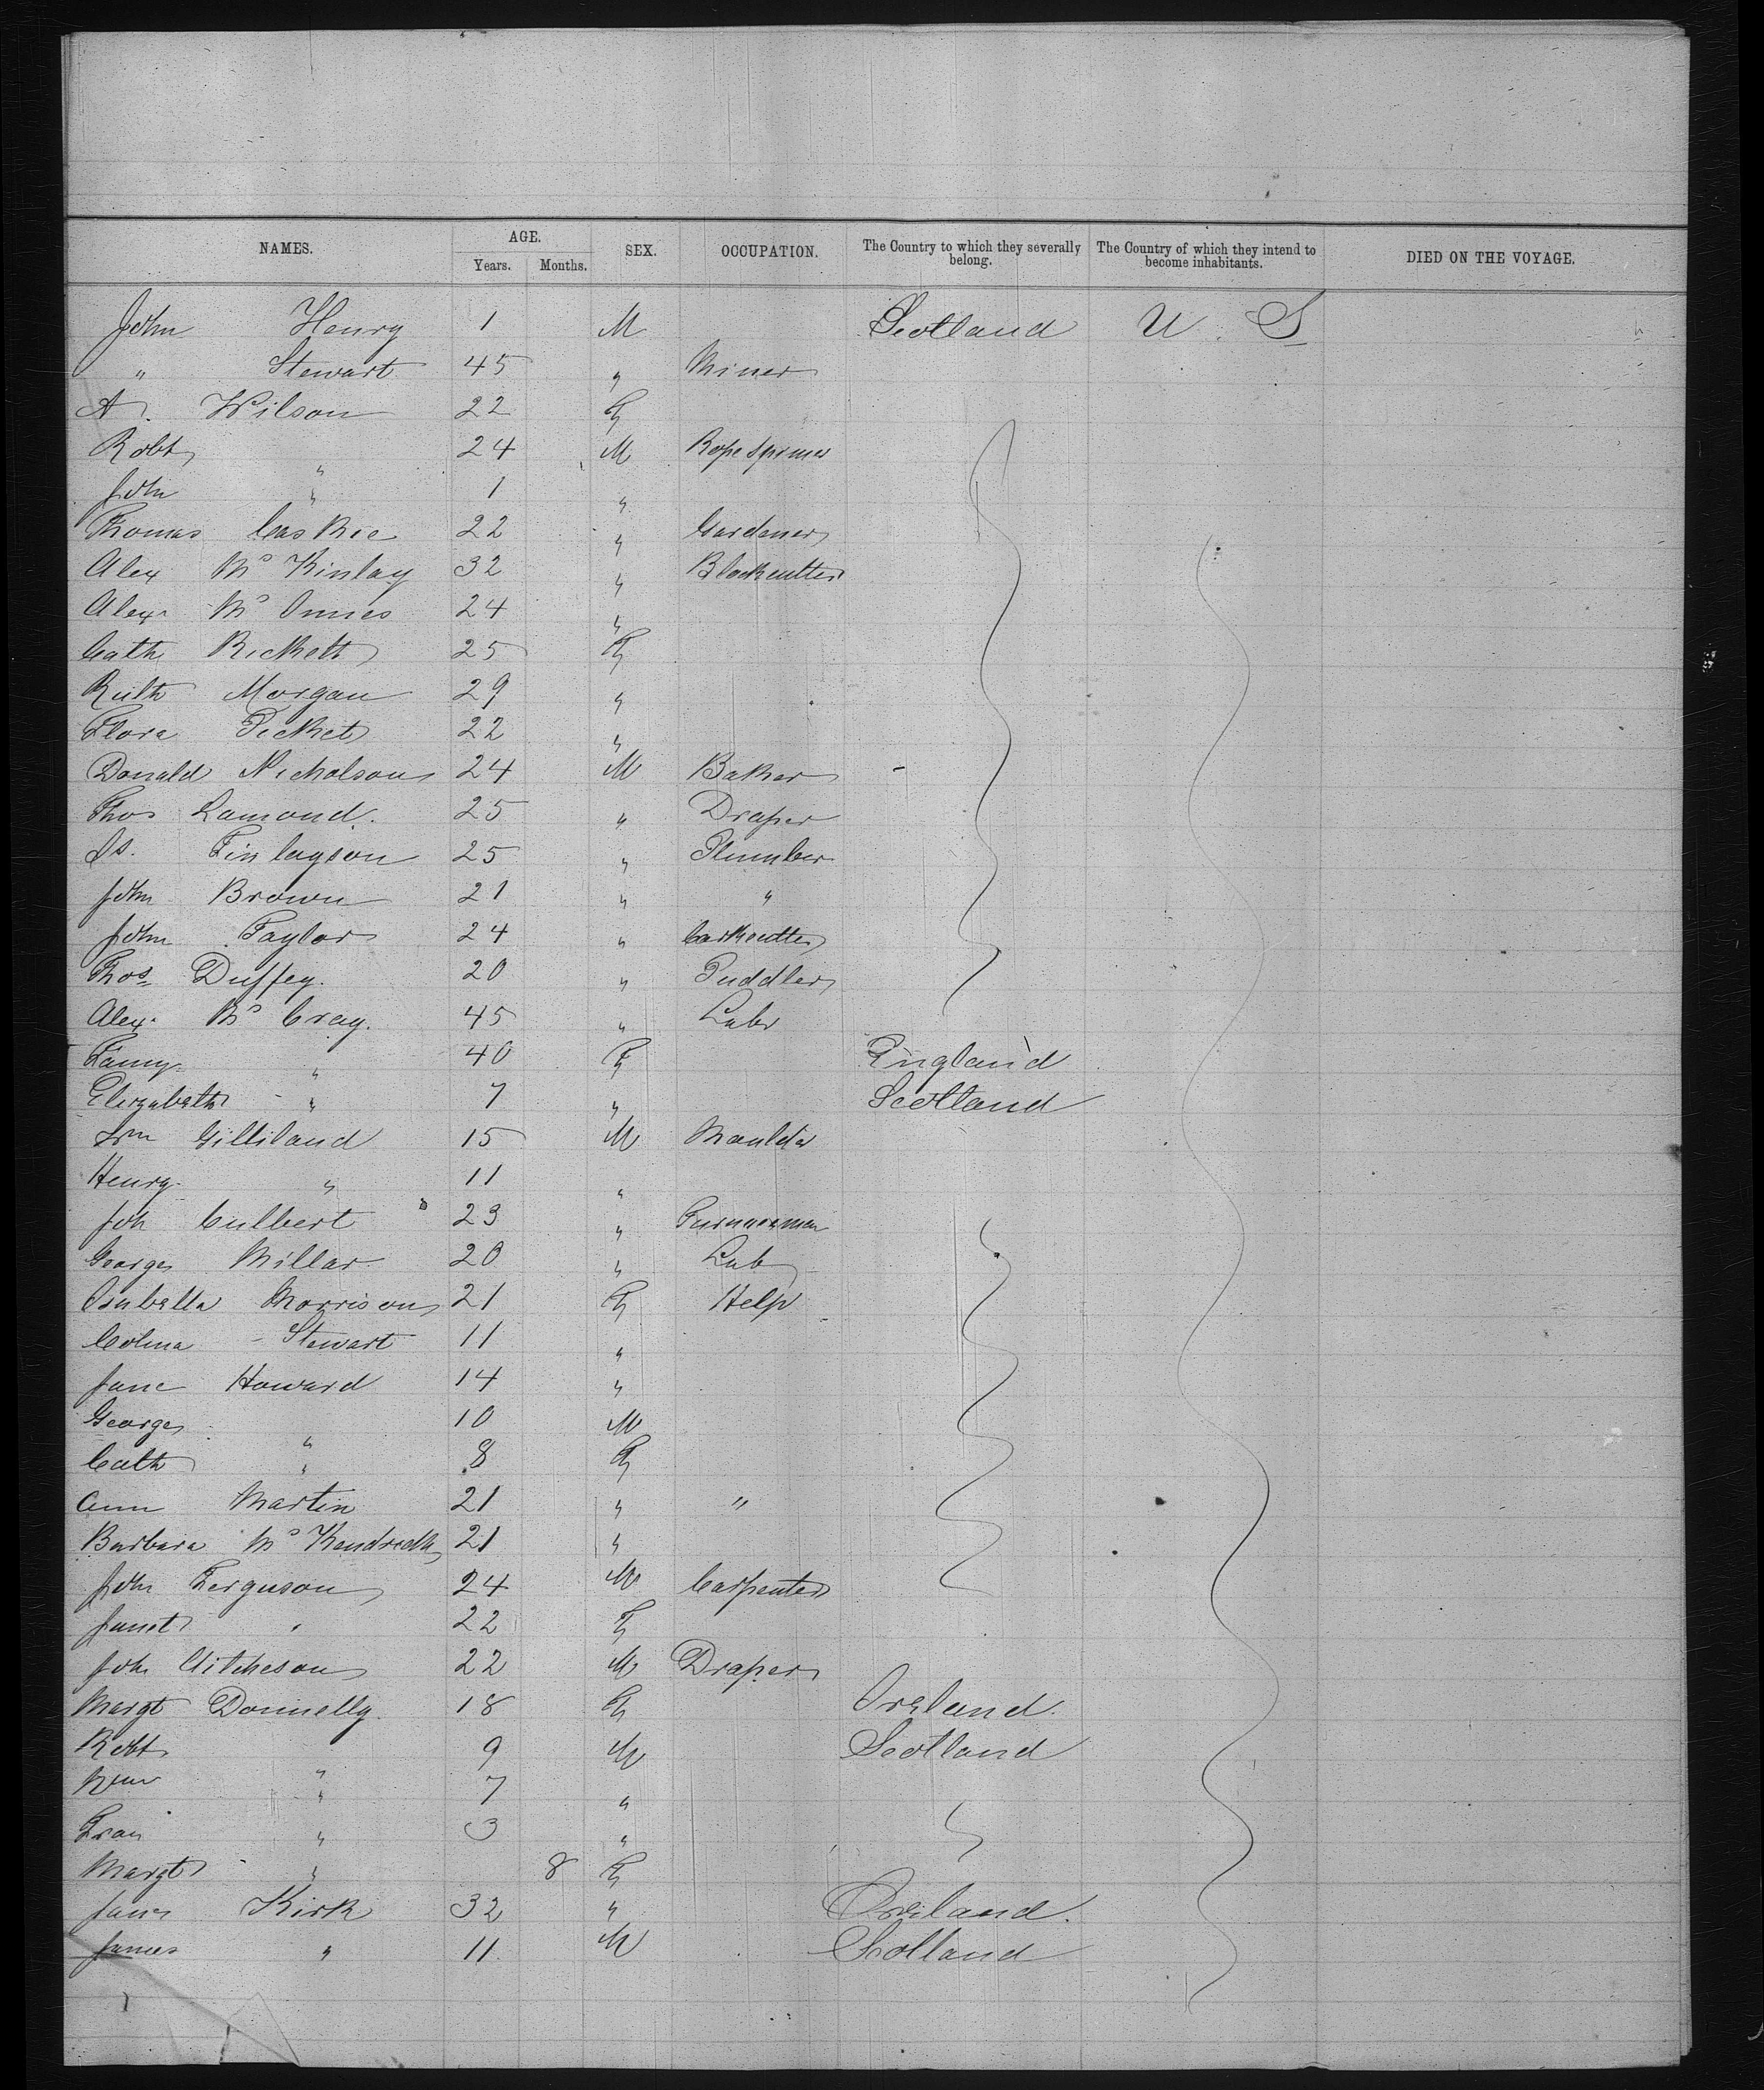 NAMES. AGE. SEX. OCCUPATION. The Country to which they severally belong. The Country of which they intend to become inhabitants. DIED ON THE VOYAGE.
Years. Months.
John Henry 1 M Scotland U. S
" Stewart 45 " Miner
A. Wilson 22 F
Robt " 24 M Ropespinner
John " 1 "
Thomas Caskie 22 " Gardener
Alex Mc Kinlay 32 " Blockcutter
Alex Mc Innes 24 "
Cath Rickett 25 F
Ruth Morgan 29 "
Flora Picket 22 "
Donald Nicholson 24 M Baker
Thos Lamond. 25 " Draper
Js. Finlayson 25 " Plumber
John Brown 21 " "
John Taylor 24 " Corkcutter
Thos Duffey. 20 " Puddler
Alex. Mc Cray. 45 " Labr
Fanny " 40 F England
Elizabeth " 7 " Scotland
Wm Gilliland 15 M Moulder
Henry " 11 "
Joh Culbert 23 " Furnaceman
George Millar 20 " Lab
Isabella Morrison 21 F Help
Colina Stewart 11 "
Jane Howard 14 "
George " 10 M
Cath " 8 F
Ann Martin 21 " "
Barbara Mc Kendrick 21 "
John Ferguson 24 M Carpenter
Janet " 22 F
Joh Aitcheson 22 M Draper
Margt Donnelly. 18 F Ireland.
Robt " 9 M Scotland
Wm " 7 "
Fran " 3 "
Margt " 8 F
Kirk 32 " Ireland.
James " 11 M Scotland